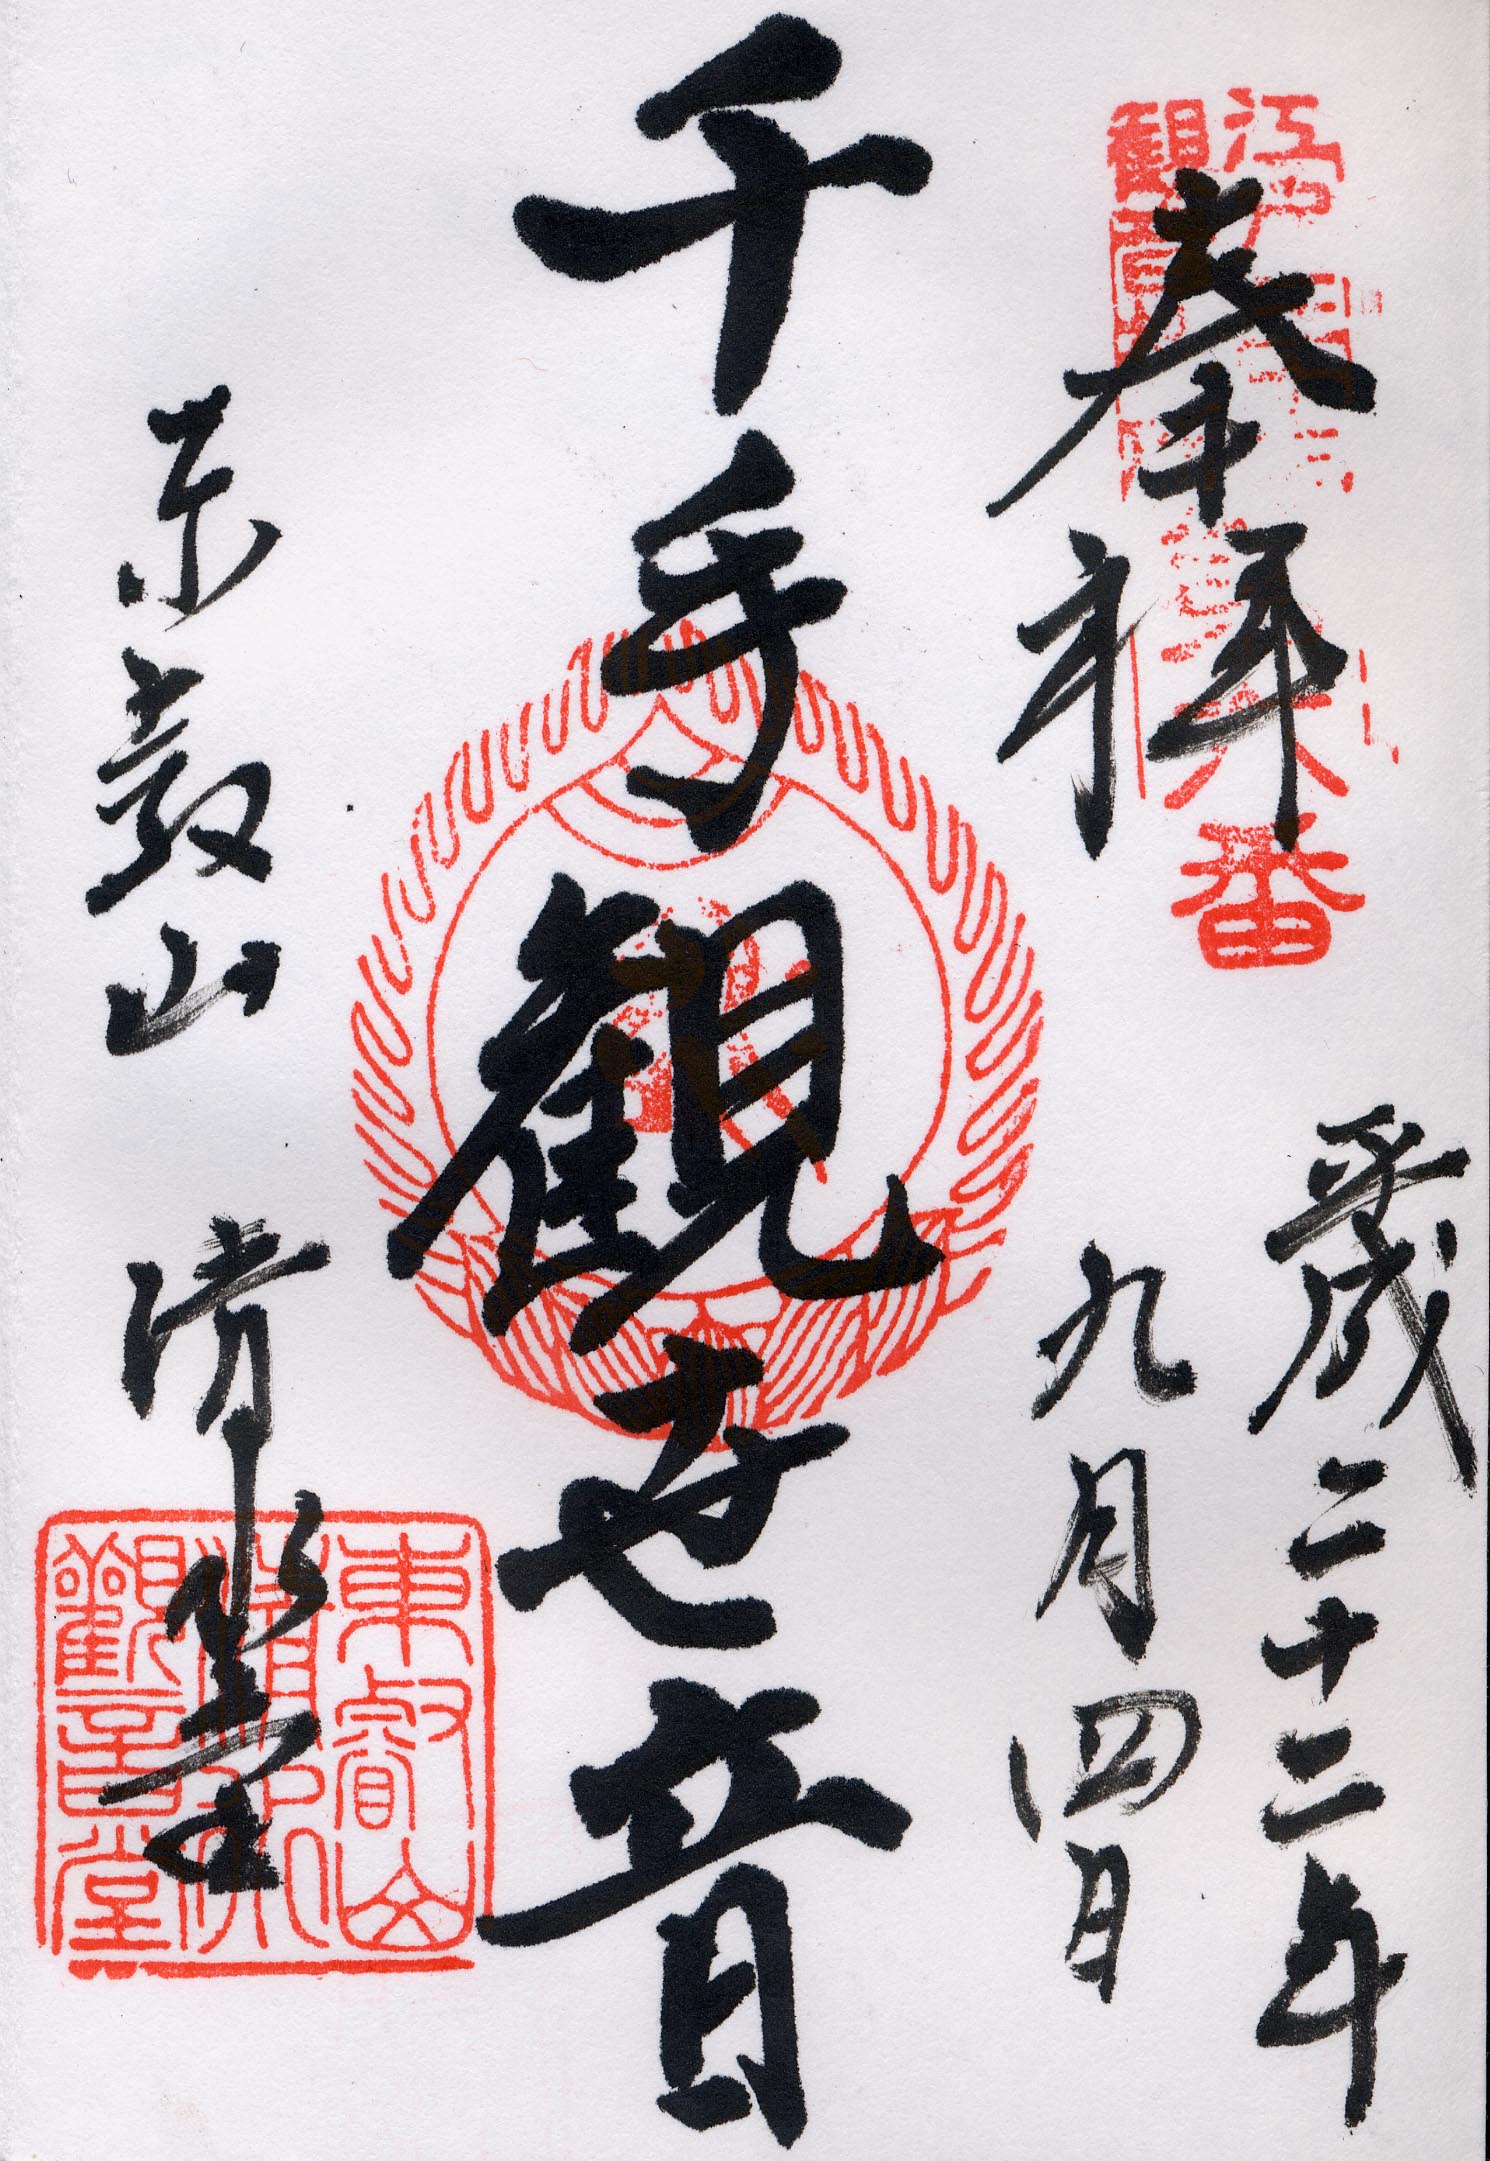 奉拝
平成二十二年
九月四日
千手観世音
東叡山 清水堂
江戸三十三
観音
六番
東叡山
清水
観音堂